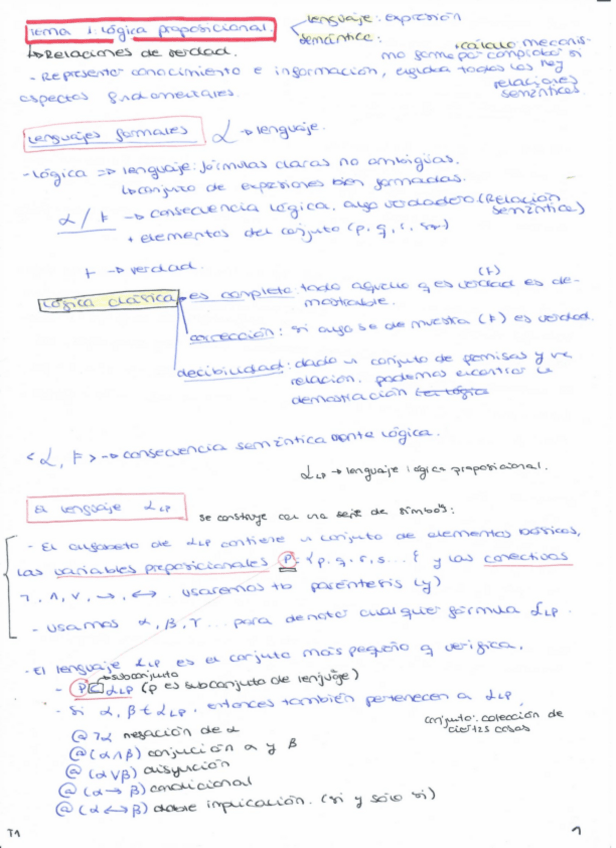 Tema 1: Lógica proposicional.
lenguaje: expresión
semántica:
+cálculo mecanis-
mo forma por completo si
↳Relaciones de verdad.
- Representar conocimiento e información, todos los
relaciones
semánticas.
aspectos fundamentales
Lenguajes formales L → lenguaje.
- Lógica => lenguaje: fórmulas claras no ambigüas.
↳conjunto de expresiones bien formadas.
L / ⊨ → consecuencia lógica, algo verdadero (Relación
semántica)
+ elementos del conjunto (p, q, r, s...)
⊢ → verdad.
Lógica clásica
es completa: todo aquello q es verdad es de-
(⊨)
mostrable.
corrección: si algo se demuestra (⊢) es verdad.
decibilidad: dado un conjunto de premisas y una
relación, podemos encontrar la
demostración
< L, ⊨ > → consecuencia semántica lógica.
L LP → lenguaje lógica proposicional.
El lenguaje L LP
se construye con una serie de símbolos:
- El alfabeto de L LP contiene un conjunto de elementos básicos,
las variables proposicionales P: {p, q, r, s...} y las conectivas
¬, ∧, ∨, →, ↔. usaremos tb paréntesis ( y )
- usamos α, β, γ... para denotar cualquier fórmula L LP.
- El lenguaje L LP es el conjunto más pequeño q verifica,
→subconjunto
- P ⊂ L LP (P es subconjunto de lenguaje)
- Si α, β ∈ L LP, entonces también pertenecen a L LP,
conjunto: colección de
ciertas cosas
@ ¬α negación de α
@ (α∧β) conjunción α y β
@ (α∨β) disyunción
@ (α→β) condicional
@ (α↔β) doble implicación. (si y sólo si)
T1
1